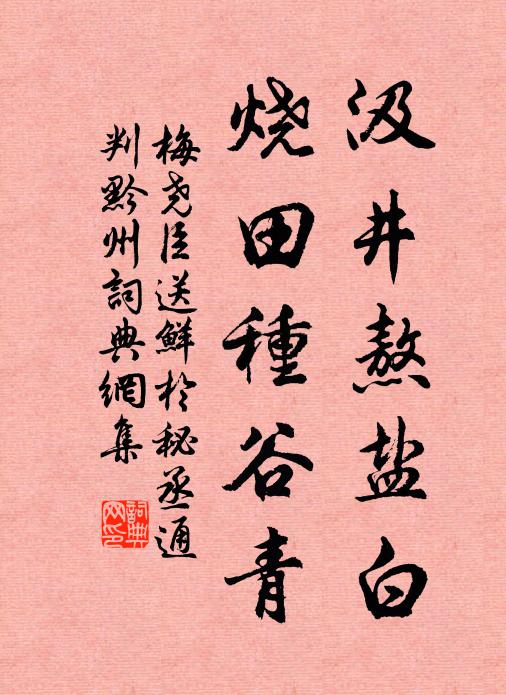 汲井熬盐白
烧田種谷青
梅尧臣送鮮於秘丞通
判黔州詞典網集
詞典
网印